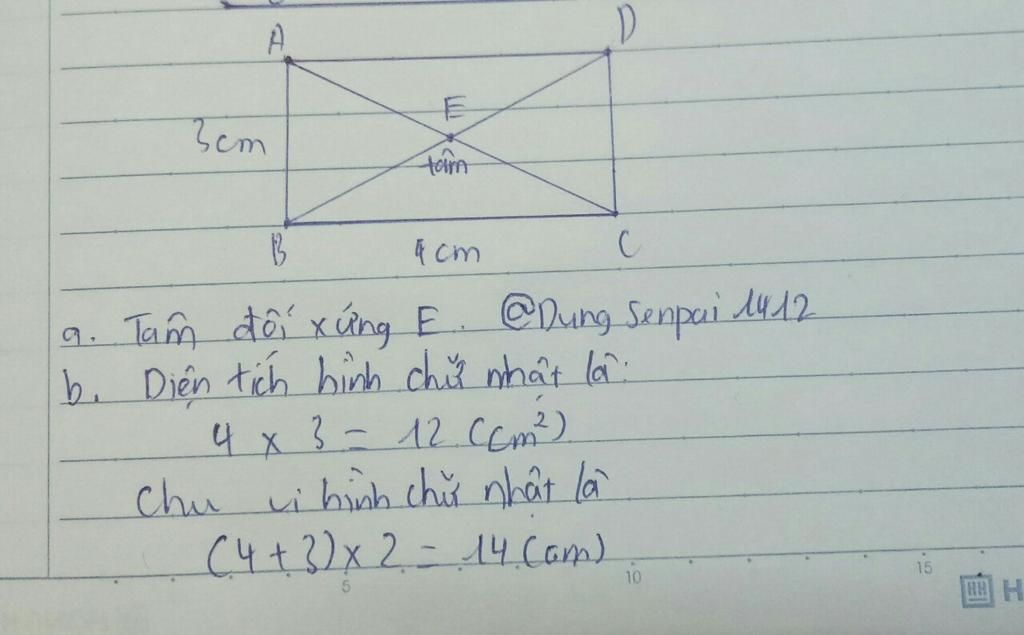 A
D
E
3cm
tâm
B
4cm
C
a. Tâm đối xứng E. @Dung Senpai 1412
b. Diện tích hình chữ nhật là:
4 x 3 = 12 (cm²)
Chu vi hình chữ nhật là
(4+3) x 2 = 14 (cm)
5
10
15
H